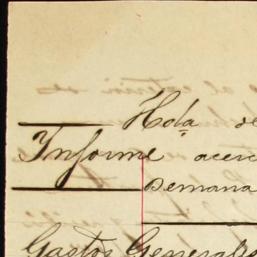 Hoja de
Informe acerc
Semana
Gastos Generales